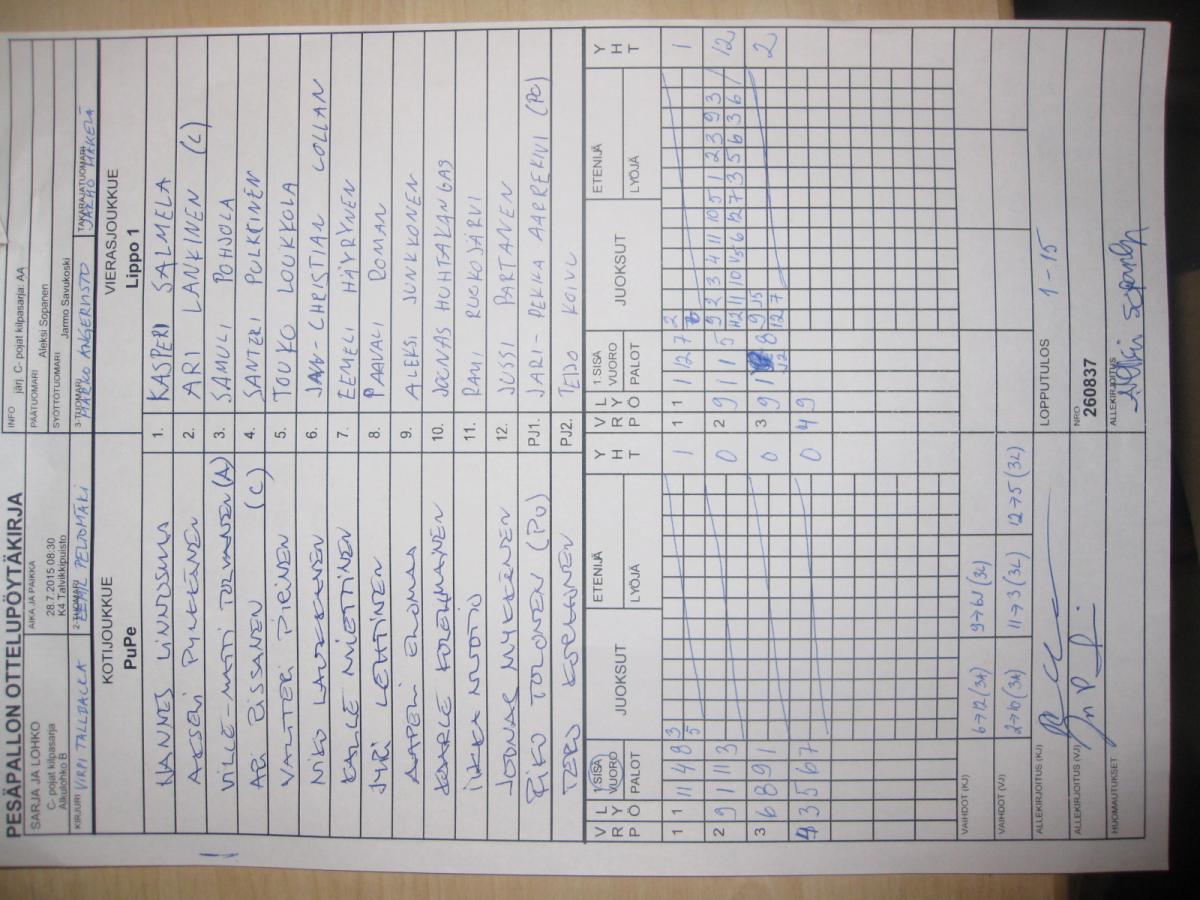 PESÄPALLON OTTELUPÖYTÄKIRJA
SARJA JA LOHKO
C- pojat kilpasarja
Alkulohko B
AIKA JA PAIKKA
28.7.2015 08:30
K4 Talvikkipuisto
INFO järj. C- pojat kilpasarja: AA
PÄÄTUOMARI Aleksi Sopanen
SYÖTTÖTUOMARI Jarmo Savukoski
KIRJURI VIRPI TALLBACKA
2-TUOMARI EEMIL PELTOMÄKI
3-TUOMARI MARKO ANGERVISTO
TAKARAJATUOMARI JARMO MÄKELÄ
KOTIJOUKKUE
PuPe
VIERASJOUKKUE
Lippo 1
HANNES LINDOSUMA 1. KASPERI SALMELA
AKSELI PYKÄLÄINEN 2. ARI LANKINEN (L)
VILLE-MATTI TORVINEN (A) 3. SAMULI POHJOLA
API PISSANEN (C) 4. SANTERI PULKKINEN
VALTTERI PIRINEN 5. TOUKO LOUKKOLA
NIKO LAUKKANEN 6. JAN-CHRISTIAN COLLAN
KALLE MIETTINEN 7. EEMELI HÄYRYNEN
JYRI LEHTINEN 8. PAAVALI ROMAN
AAPELI ELOMAA 9. ALEKSI JUNKKONEN
KAARLE KORHONEN 10. JOONAS HUHTAKANGAS
IIKKA NUOTIO 11. RAMI RUOKOJÄRVI
JOONAS NYKÄNEN 12. JUSSI PARTANEN
EIKO TOLONEN (PJ) PJ1. JARI-PEKKA AARREKIVI (PJ)
TERO KORHONEN PJ2. TEIJO KOIVU
V R L Y Ö 1.SISÄ VUORO PALOT JUOKSUT ETENIJÄ LYÖJÄ Y H T
V R L Y Ö 1.SISÄ VUORO PALOT JUOKSUT ETENIJÄ LYÖJÄ Y H T
1 1 11 4 8 3 5 1
1 1 1 12 7 2 1
2 9 1 11 3 0
2 9 1 1 5 9 2 3 4 11 10 5 1 2 3 9 3 12
3 6 8 9 1 0
3 9 1 8 2
4 3 5 6 7 0
4 9
VAIHDOT (KJ) 6→12 (3A) 9→61 (3L)
VAIHDOT (VJ) 2→10 (3A) 11→3 (3L) 12→5 (3L)
ALLEKIRJOITUS (KJ)
LOPPUTULOS 1 - 15
ALLEKIRJOITUS (VJ)
NRO 260837
HUOMAUTUKSET
ALLEKIRJOITUS Aleksi Sopanen